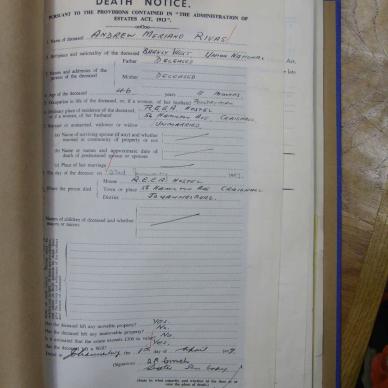 DEATH NOTICE.
PURSUANT TO THE PROVISIONS CONTAINED IN "THE ADMINISTRATION OF
ESTATES ACT, 1913".
1. Name of deceased ANDREW MERIANO RIVAS
2. Birthplace and nationality of the deceased BARKLY WEST UNION NATIONAL
3. Names and addresses of the parents of the deceased
Father DECEASED
Mother DECEASED
4. Age of the deceased 46 years 11 months
5. Occupation in life of the deceased, or, if a woman, of her husband
Ordinary place of residence of the deceased, or if a woman, of her husband R.E.E.A HOSTEL
56 HAMILTON AVE, CRAIGHALL
Married or unmarried, widower or widow UNMARRIED
(a) Name of surviving spouse (if any) and whether married in community of property or not
(b) Name or names and approximate date of death of predeceased spouse or spouses
(c) Place of last marriage
The day of the decease on
Where the person died
House R.E.E.A. HOSTEL
Town or place 56 HAMILTON AVE CRAIGHALL
District JOHANNESBURG.
Names of children of deceased and whether majors or minors
Has the deceased left any movable property? Yes.
Has the deceased left any immovable property? No.
Is it estimated that the estate exceeds £300 in value? No.
Has the deceased left a Will? Yes.
Dated at Johannesburg April
(Signature)
(State in what capacity and whether at the time or